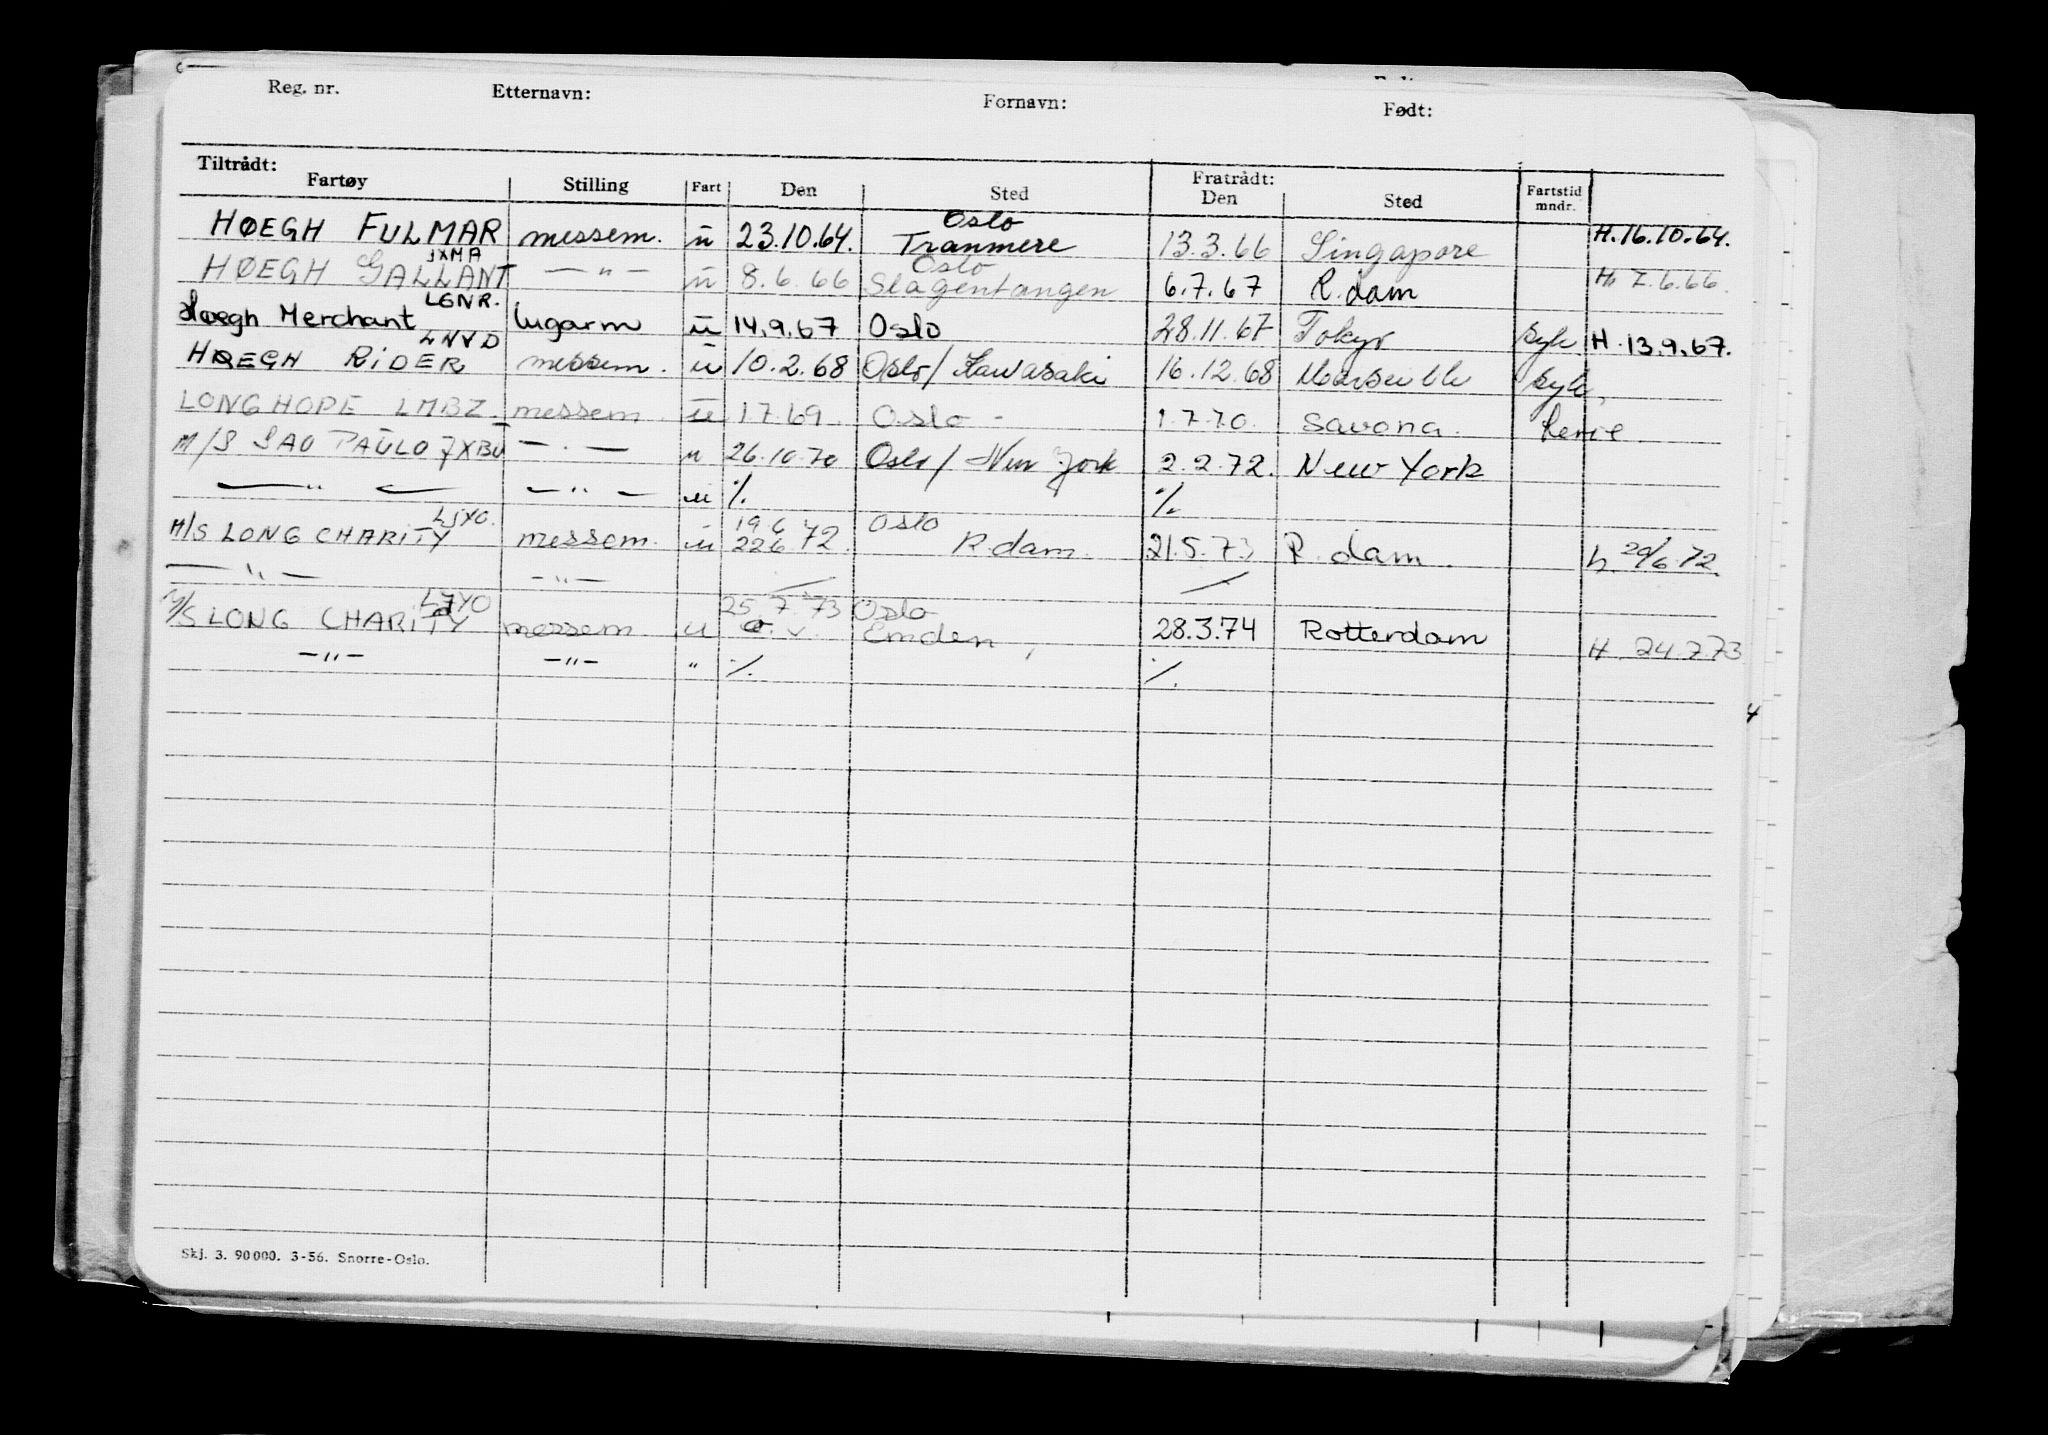 Reg. nr. Etternavn: Fornavn: Født:
Tiltrådt: Fratrådt:
Fartøy Stilling Fart Den Sted Den Sted Fartstid mndr.
HØEGH FULMAR messem. ū 23.10.64. Oslo Tranmere 13.3.66 Singapore H.16.10.64.
JXMA
HØEGH GALLANT — " — ū 8.6.66 Oslo Slagentangen 6.7.67 R.dam H. 7.6.66.
LGNR.
Høegh Merchant lugarm ū 14.9.67 Oslo 28.11.67 Tokyo syk H. 13.9.67.
LNVD
HØEGH RIDER messem. ū 10.2.68 Oslo/Kawasaki 16.12.68 Marseille syk,
LONG HOPE LMBZ. messem. ū 1.7.69. Oslo - 1.7.70. Savona. ferie.
M/S SAO PAULO JXBU — . — u 26.10.70 Oslo/New York 2.2.72. New York
— " — — " — u ./. ./.
LJYO.
M/S LONG CHARITY messem. u 19 6 22 6 72. Oslo R.dam. 21.5.73 R.dam. h. 20/6.72.
— " — — " —
LJYO
M/S LONG CHARITY messem. u 25.7.73 Oslo Emden, 28.3.74 Rotterdam H. 24.7.73
— " — — " — " ./. ./.
4
Skj. 3. 90000. 3-56. Snorre-Oslo.